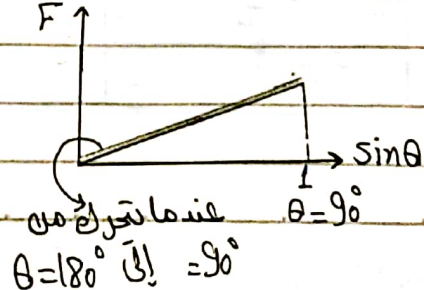 F
sinθ
1
θ=90°
عندما تتحرك من
θ=180° إلى =90°